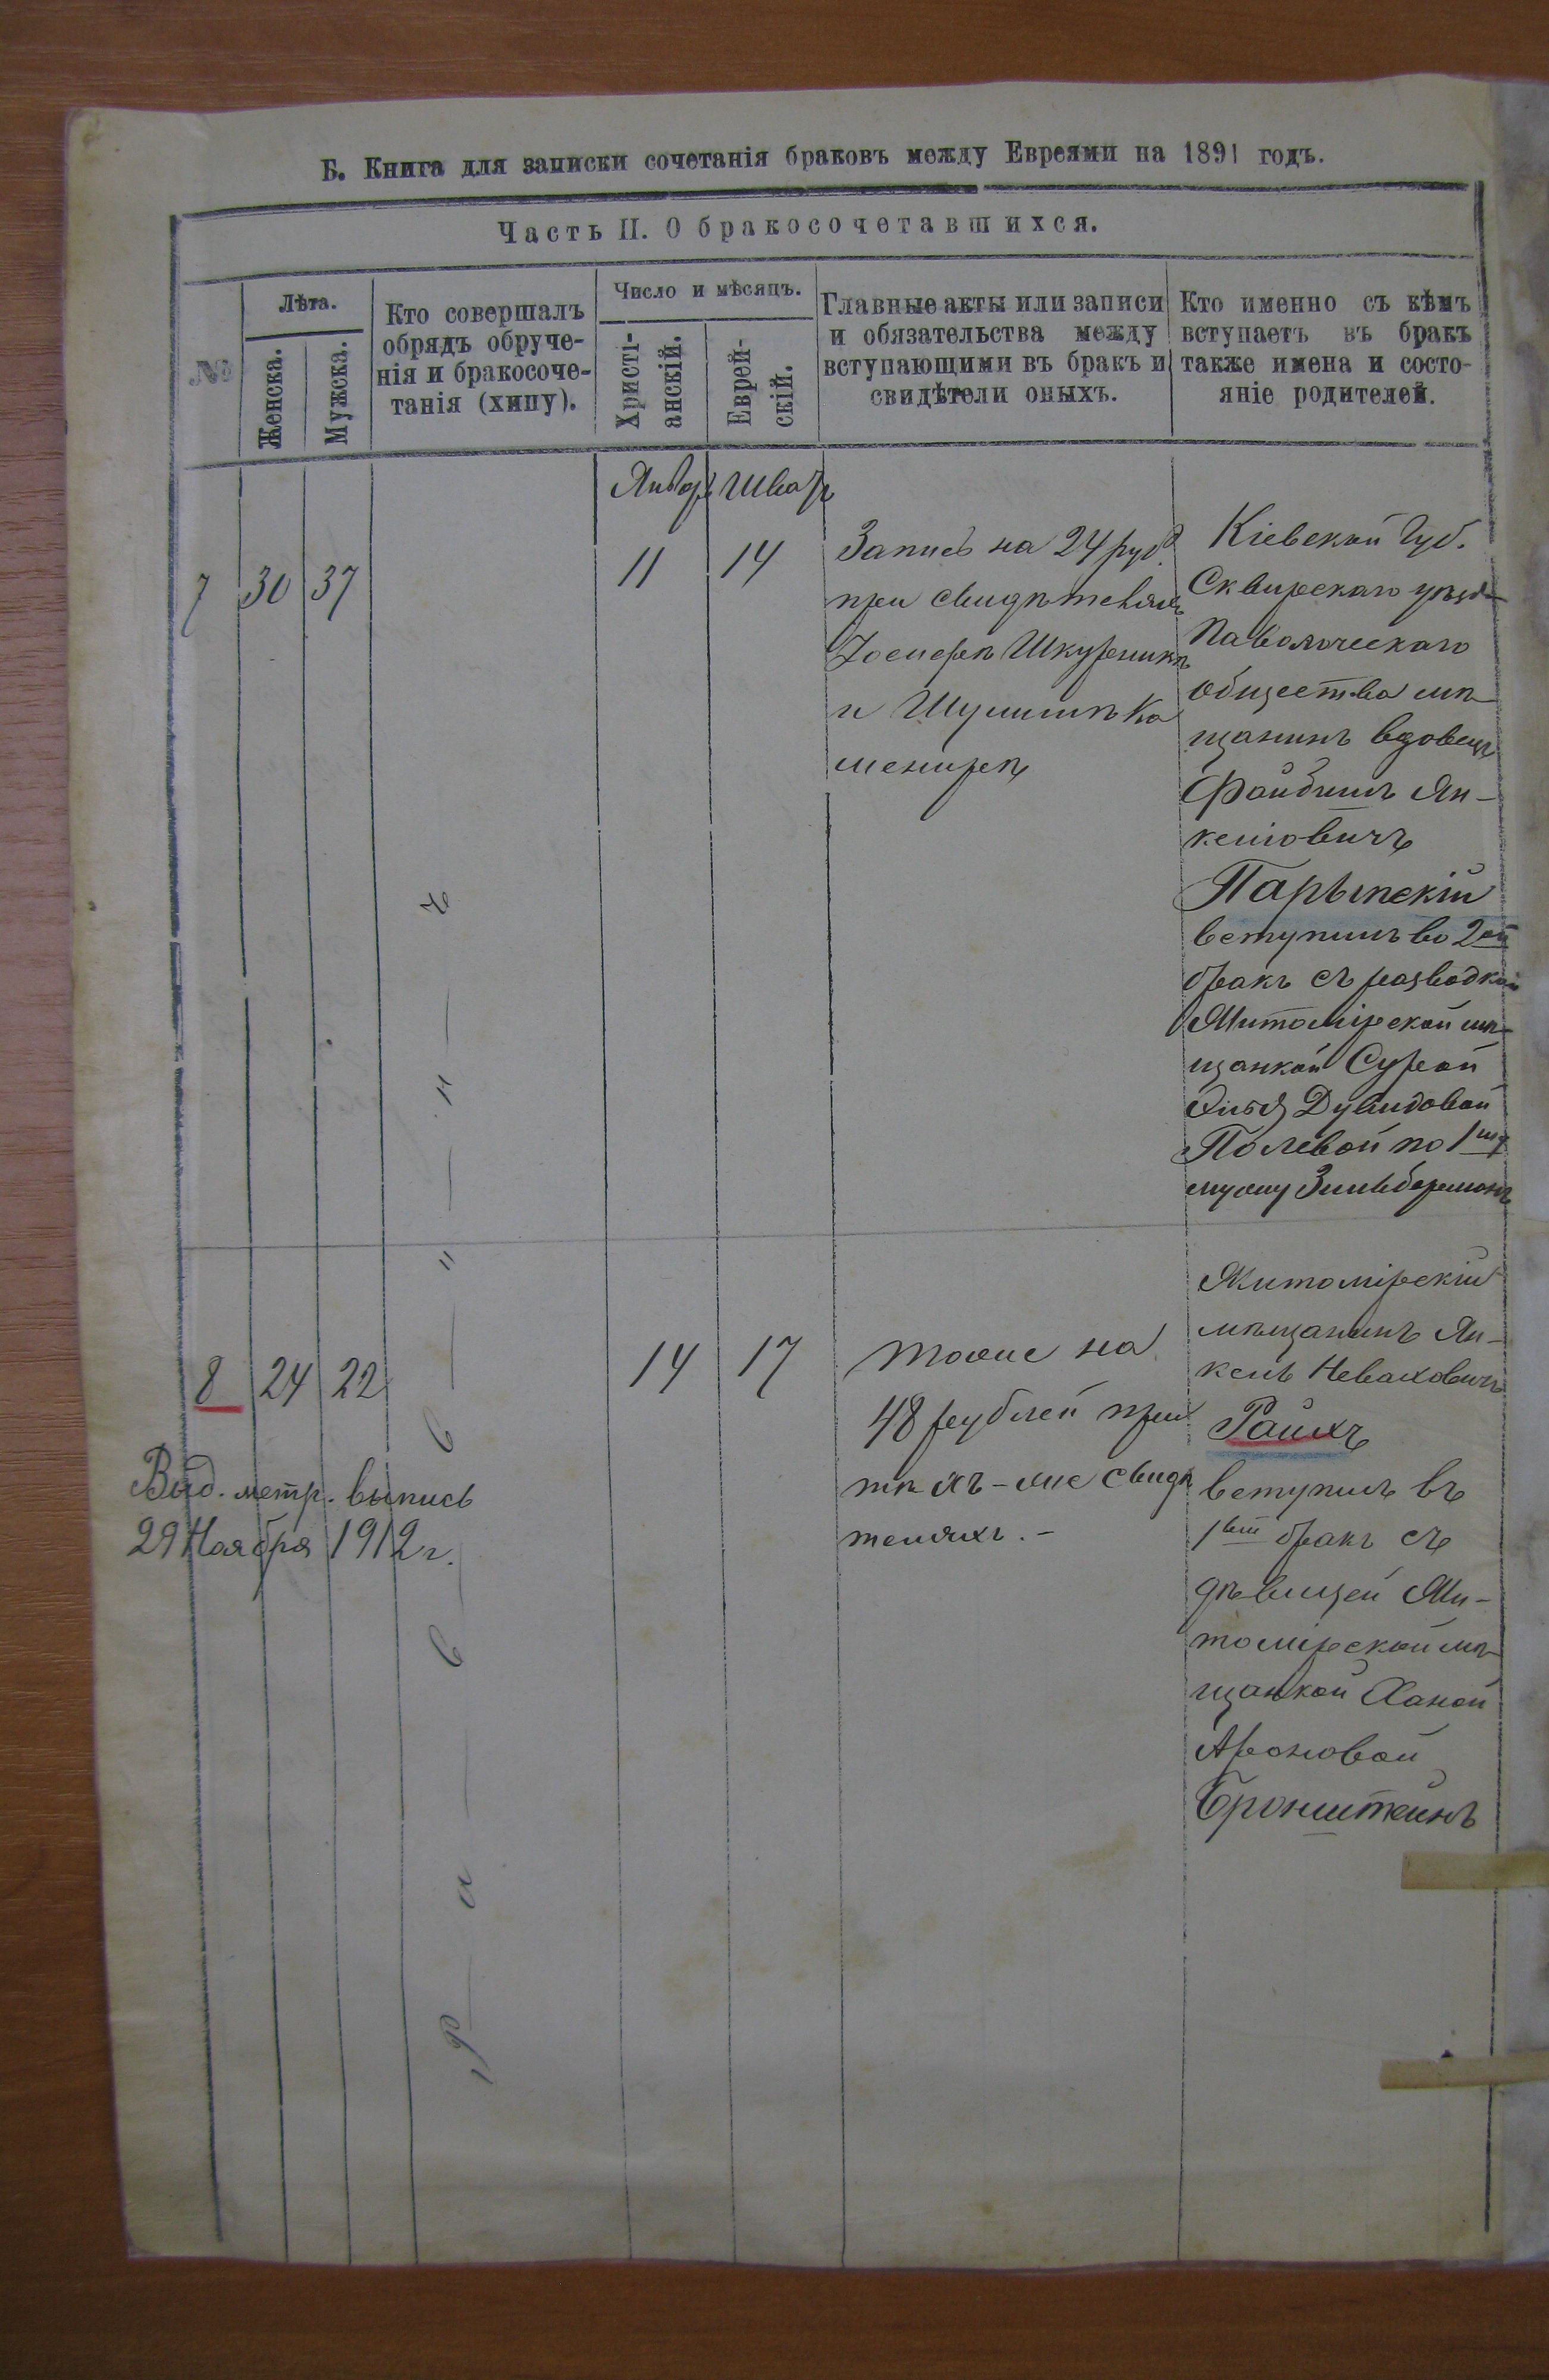 Б. Книга для записки сочетанія браковъ между Евреями на 1891 годъ.
Часть II. О бракосочетавшихся.
№
Лѣта.
Женска.
Мужска.
Кто совершалъ
обрядъ обруче-
нія и бракосоче-
танія (хипу).
Число и мѣсяцъ.
Христі-
анскій.
Еврей-
скій.
Главные акты или записи
и обязательства между
вступающими въ бракъ и
свидѣтели оныхъ.
Кто именно съ кѣмъ
вступаетъ въ бракъ
также имена и состо-
яніе родителей.
Январ Шватъ
7 30 37
11 14
Запись на 24 руб.
при свидѣтеляхъ
Іосифѣ Шкурникѣ
и Шулимѣ Ка
менирѣ
Кіевской Губ.
Сквирскаго уѣзд
Паволочскаго
общества мѣ-
щанинъ вдовецъ
Файбишъ Ян-
келіовичъ
Парыпскій
вступилъ во 2ой
бракъ съ разводкой
Житомірской мѣ-
щанкой Сурой
Дувидовой
Полевой по 1му
мужу Зильберманъ
Р а в в и н ъ
8 24 22
14 17
тоже на
48 рублей при
тѣхъ-же свидѣ
теляхъ.-
Житомірскій
мѣщанинъ Ян-
кель Неваховичъ
Райхъ
вступилъ въ
1вый бракъ съ
дѣвицей Жи-
томірской мѣ-
щанкой Ханой
Ароновой
Бронштейнъ
Выд. метр. выпись
29 Ноября 1912 г.